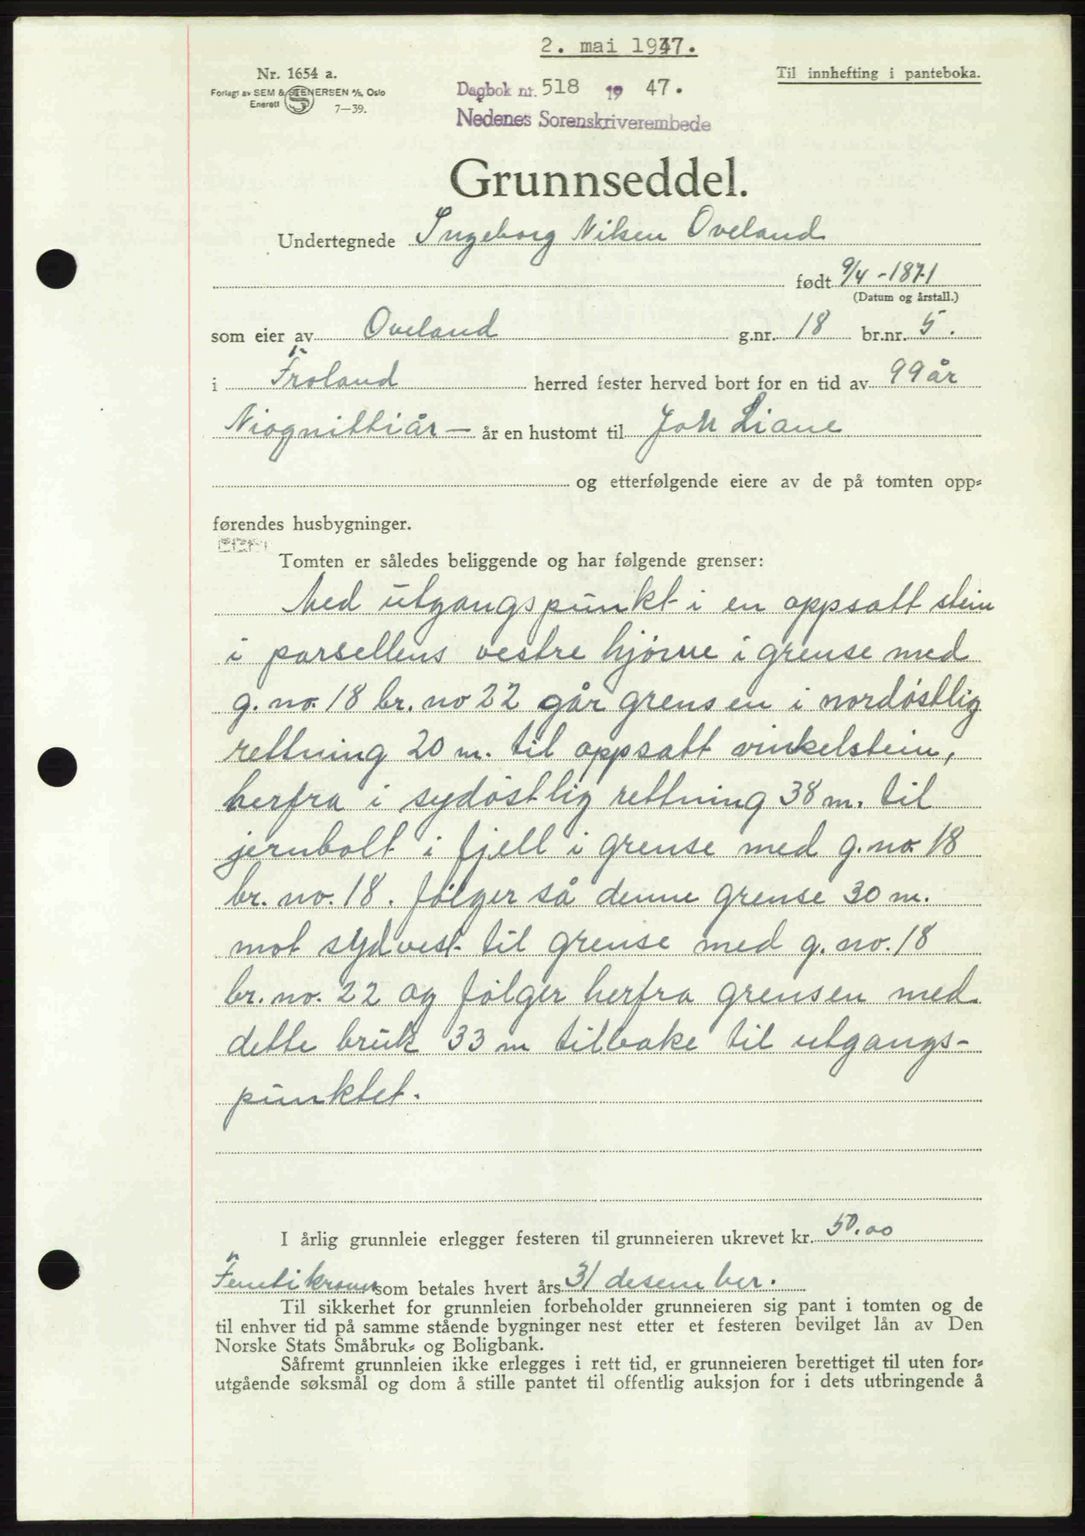 2. mai 1947.
Nr. 1654 a.
Til innhefting i panteboka.
Forlagt av SEM & STENERSEN A/S, Oslo
Enerett
7—39.
Dagbok nr. 518 19 47.
Nedenes Sorenskriverembede
Grunnseddel.
Undertegnede Ingeborg Nilsen Oveland
født 9/4 - 1871
(Datum og årstall.)
som eier av Oveland g.nr. 18 br.nr. 5.
i Froland herred fester herved bort for en tid av 99 år
Niognittiår — år en hustomt til Joh Liane
og etterfølgende eiere av de på tomten opp=
førendes husbygninger.
Tomten er således beliggende og har følgende grenser:
Med utgangspunkt i en oppsatt stein
i parsellens vestre hjørne i grense med
g. no. 18 br. no 22 går grensen i nordöstlig
rettning 20 m. til oppsatt vinkelstein,
herfra i sydöstlig rettning 38 m. til
jernbolt i fjell i grense med g. no. 18
br. no. 18. følger så denne grense 30 m.
mot sydvest til grense med g. no. 18
br. no. 22 og følger herfra grensen med
dette bruk 33 m tilbake til utgangs-
punktet.
I årlig grunnleie erlegger festeren til grunneieren ukrevet kr. 50.00
Femtikroner som betales hvert års 31 desember.
Til sikkerhet for grunnleien forbeholder grunneieren sig pant i tomten og de
til enhver tid på samme stående bygninger nest etter et festeren bevilget lån av Den
Norske Stats Småbruk= og Boligbank.
Såfremt grunnleien ikke erlegges i rett tid, er grunneieren berettiget til uten for=
utgående søksmål og dom å stille pantet til offentlig auksjon for i dets utbringende å